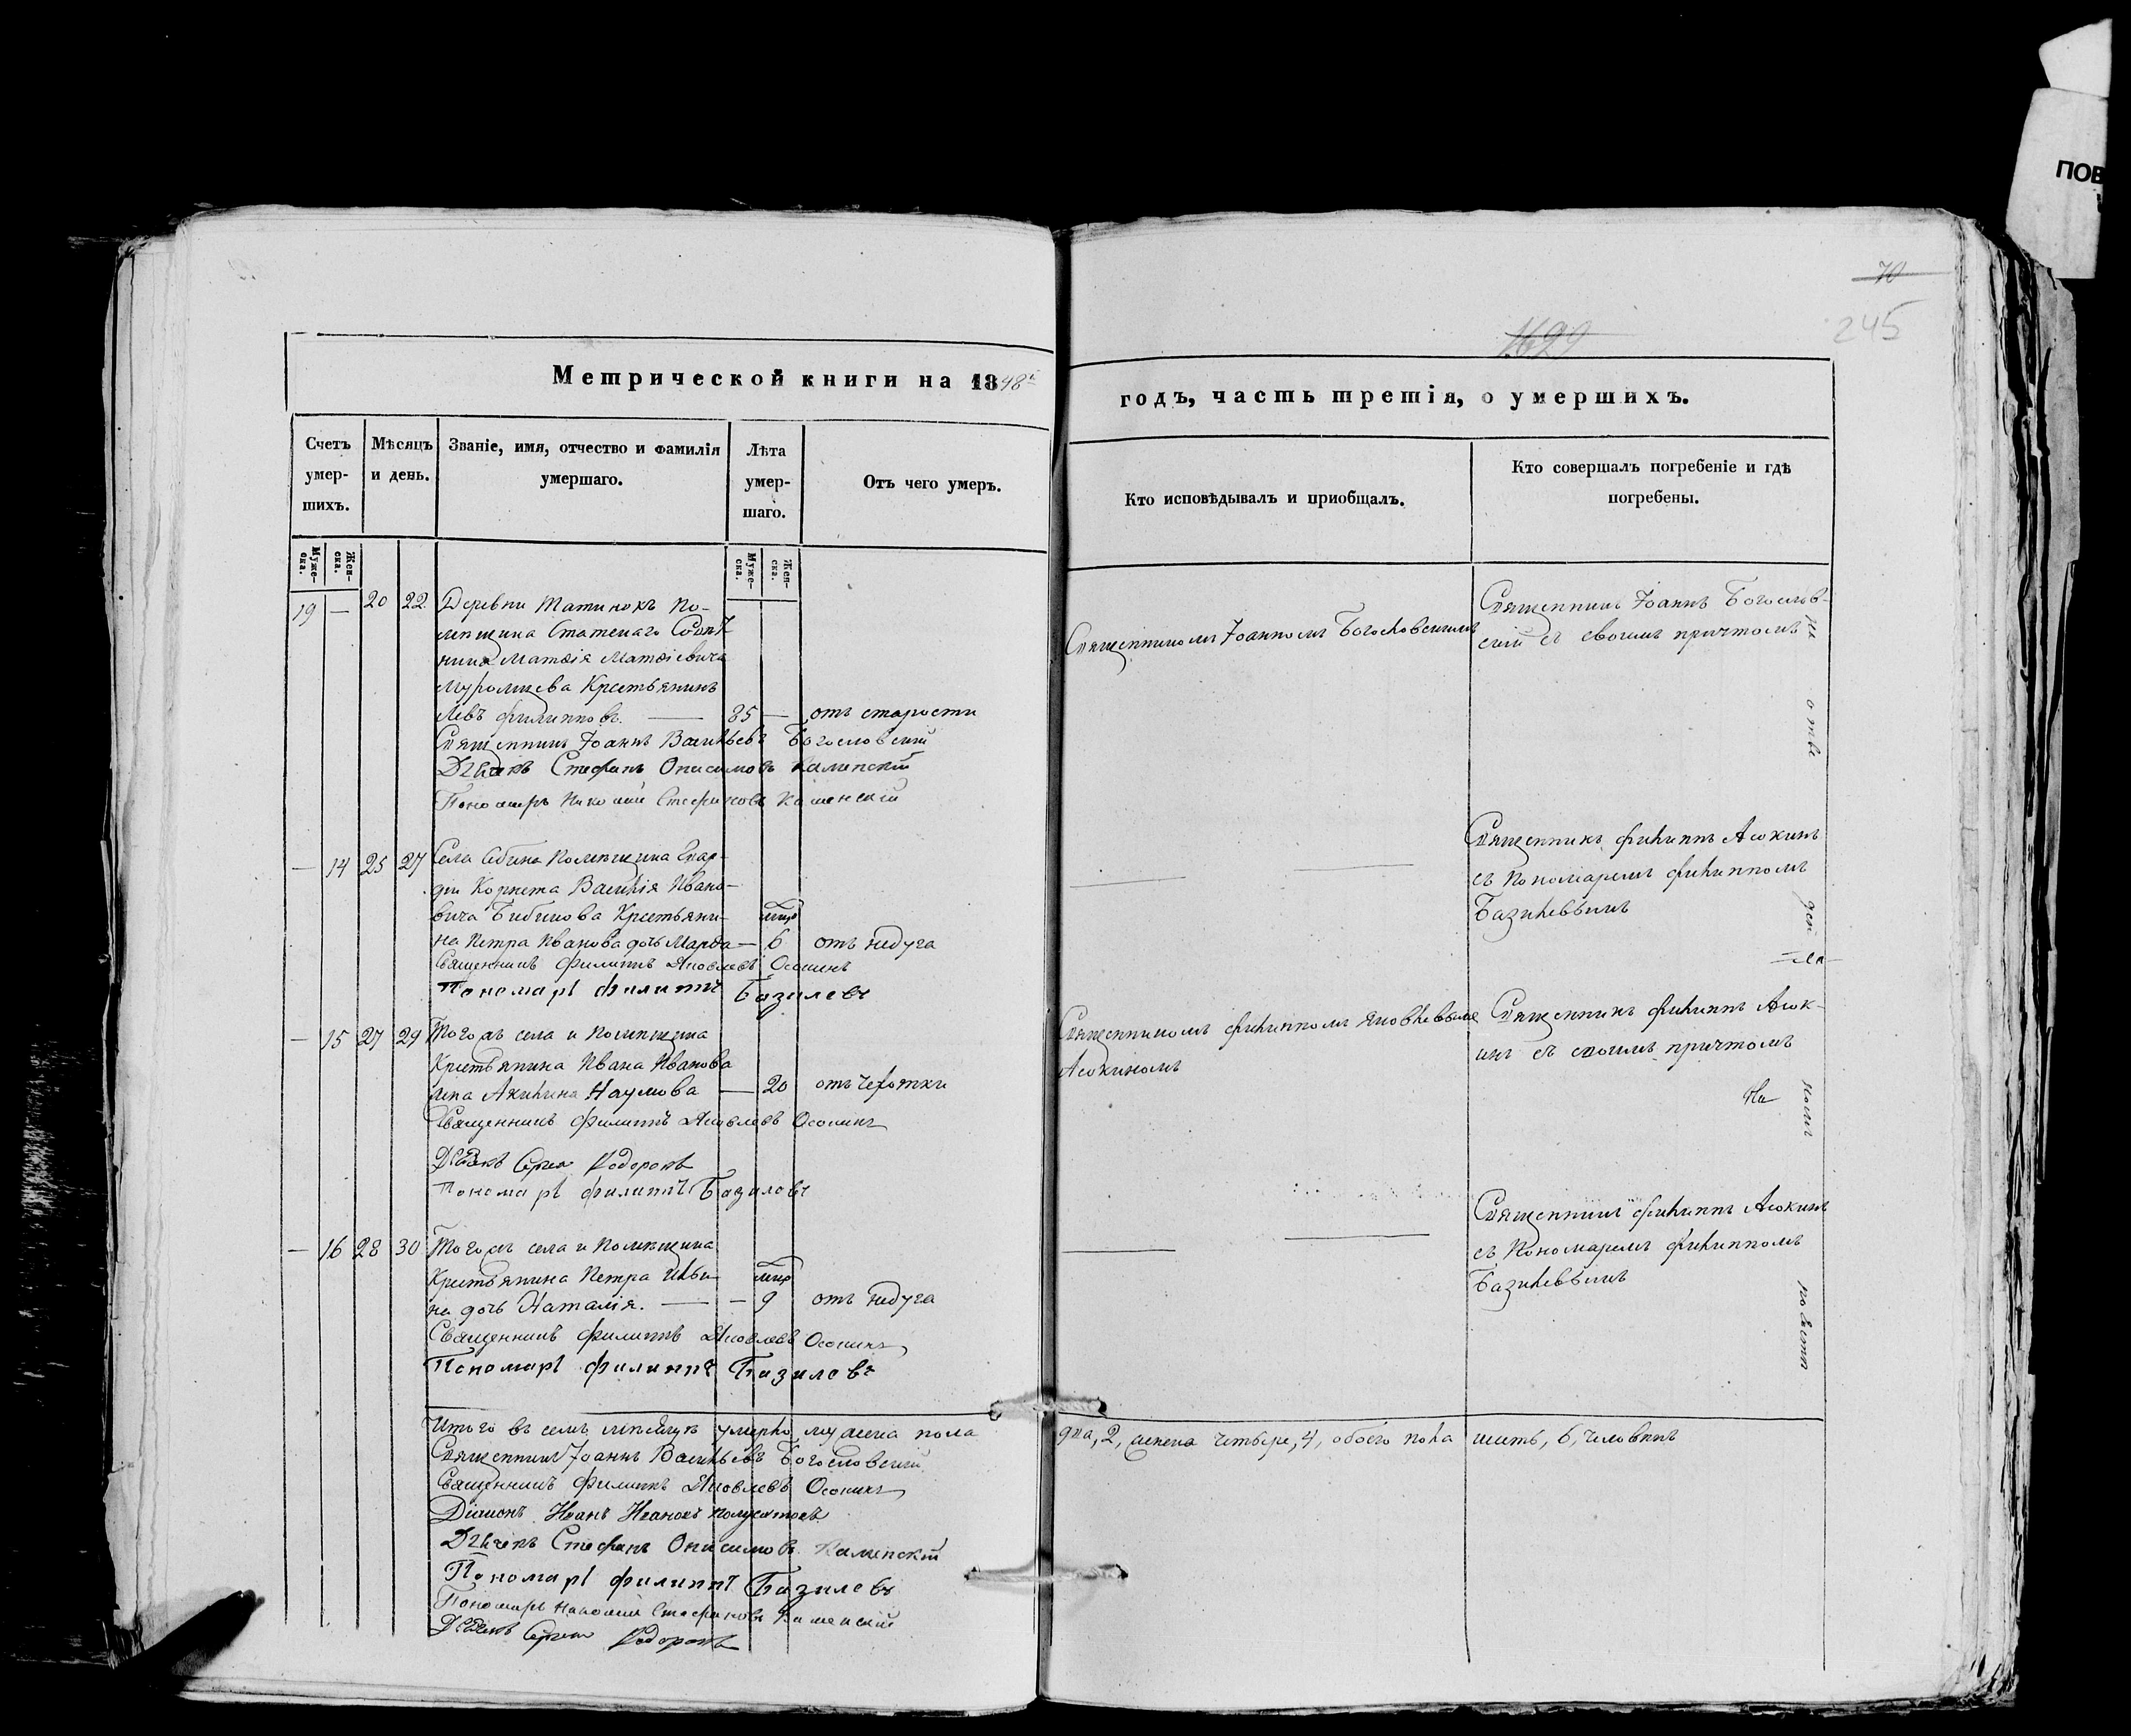 ПОВ
70
245
1699
Метрической книги на 1848й
годъ, часть третія, о умершихъ.
Счетъ умер-шихъ.
Мѣсяцъ и день.
Званіе, имя, отчество и фамилія умершаго.
Лѣта умер-шаго.
Отъ чего умеръ.
Кто исповѣдывалъ и приобщалъ.
Кто совершалъ погребеніе и гдѣ погребены.
Муже-ска.
Жен-ска.
Муже-ска.
Жен-ска.
19 — 20 22 Деревни Татинокъ По-
мѣщика Статскаго Совѣт
ника Матѳія Матѳіевича
Муромцева Крестьянинъ
Левъ Филипповъ. — 85 — отъ старости
Священникъ Іоаннъ Васильевъ Богословскій
Дьячекъ Стефанъ Онисимовъ Каменскій
Пономарь Николай Стефановъ Каменскій
Священникомъ Іоанномъ Богословскимъ
Священникъ Іоаннъ Богослов-
скій съ своимъ причтомъ
— 14 25 27 Села Себина Помѣщика Гвар-
діи Корнета Василія Ивано-
вича Бибикова Крестьяни-
на Петра Иванова дочь Марѳа — 6 отъ недуга
Священникъ Филиппъ Яковлевъ Осокинъ
Пономарь Филиппъ Базилевъ
Священникъ Филиппъ Асокинъ
съ Пономаремъ Филиппомъ
Базилевымъ
— 15 27 29 Тогожъ села и Помѣщика
Крестьянина Ивана Иванова
жена Акилина Наумова — 20 отъ чехотки
Священникъ Филиппъ Яковлевъ Осокинъ
Дьячекъ Сергей Федоровъ
Пономарь Филиппъ Базилевъ
Священникомъ Филиппомъ Яковлевымъ
Асокиномъ
Священникъ Филиппъ Асок-
инъ съ своимъ причтомъ
На
— 16 28 30 Тогожъ села и Помѣщика
Крестьянина Петра Ильи-
на дочь Наталія. — — 9 отъ недуга
Священникъ Филиппъ Яковлевъ Осокинъ
Пономарь Филиппъ Базилевъ
Священникъ Филиппъ Асокинъ
съ Пономаремъ Филиппомъ
Базилевымъ
на
отве
ден
номъ
Итого въ семъ мѣсяцѣ умерло мужеска пола
два, 2, женска четыре, 4, обоего пола шесть, 6, человѣкъ
Священникъ Іоаннъ Васильевъ Богословскій
Священникъ Филиппъ Яковлевъ Осокинъ
Діаконъ Иванъ Ивановъ Полуектовъ
Дьячекъ Стефанъ Онисимовъ Каменскій
Пономарь Филиппъ Базилевъ
Пономарь Николай Стефановъ Каменскій
Дьячекъ Сергей Федоровъ